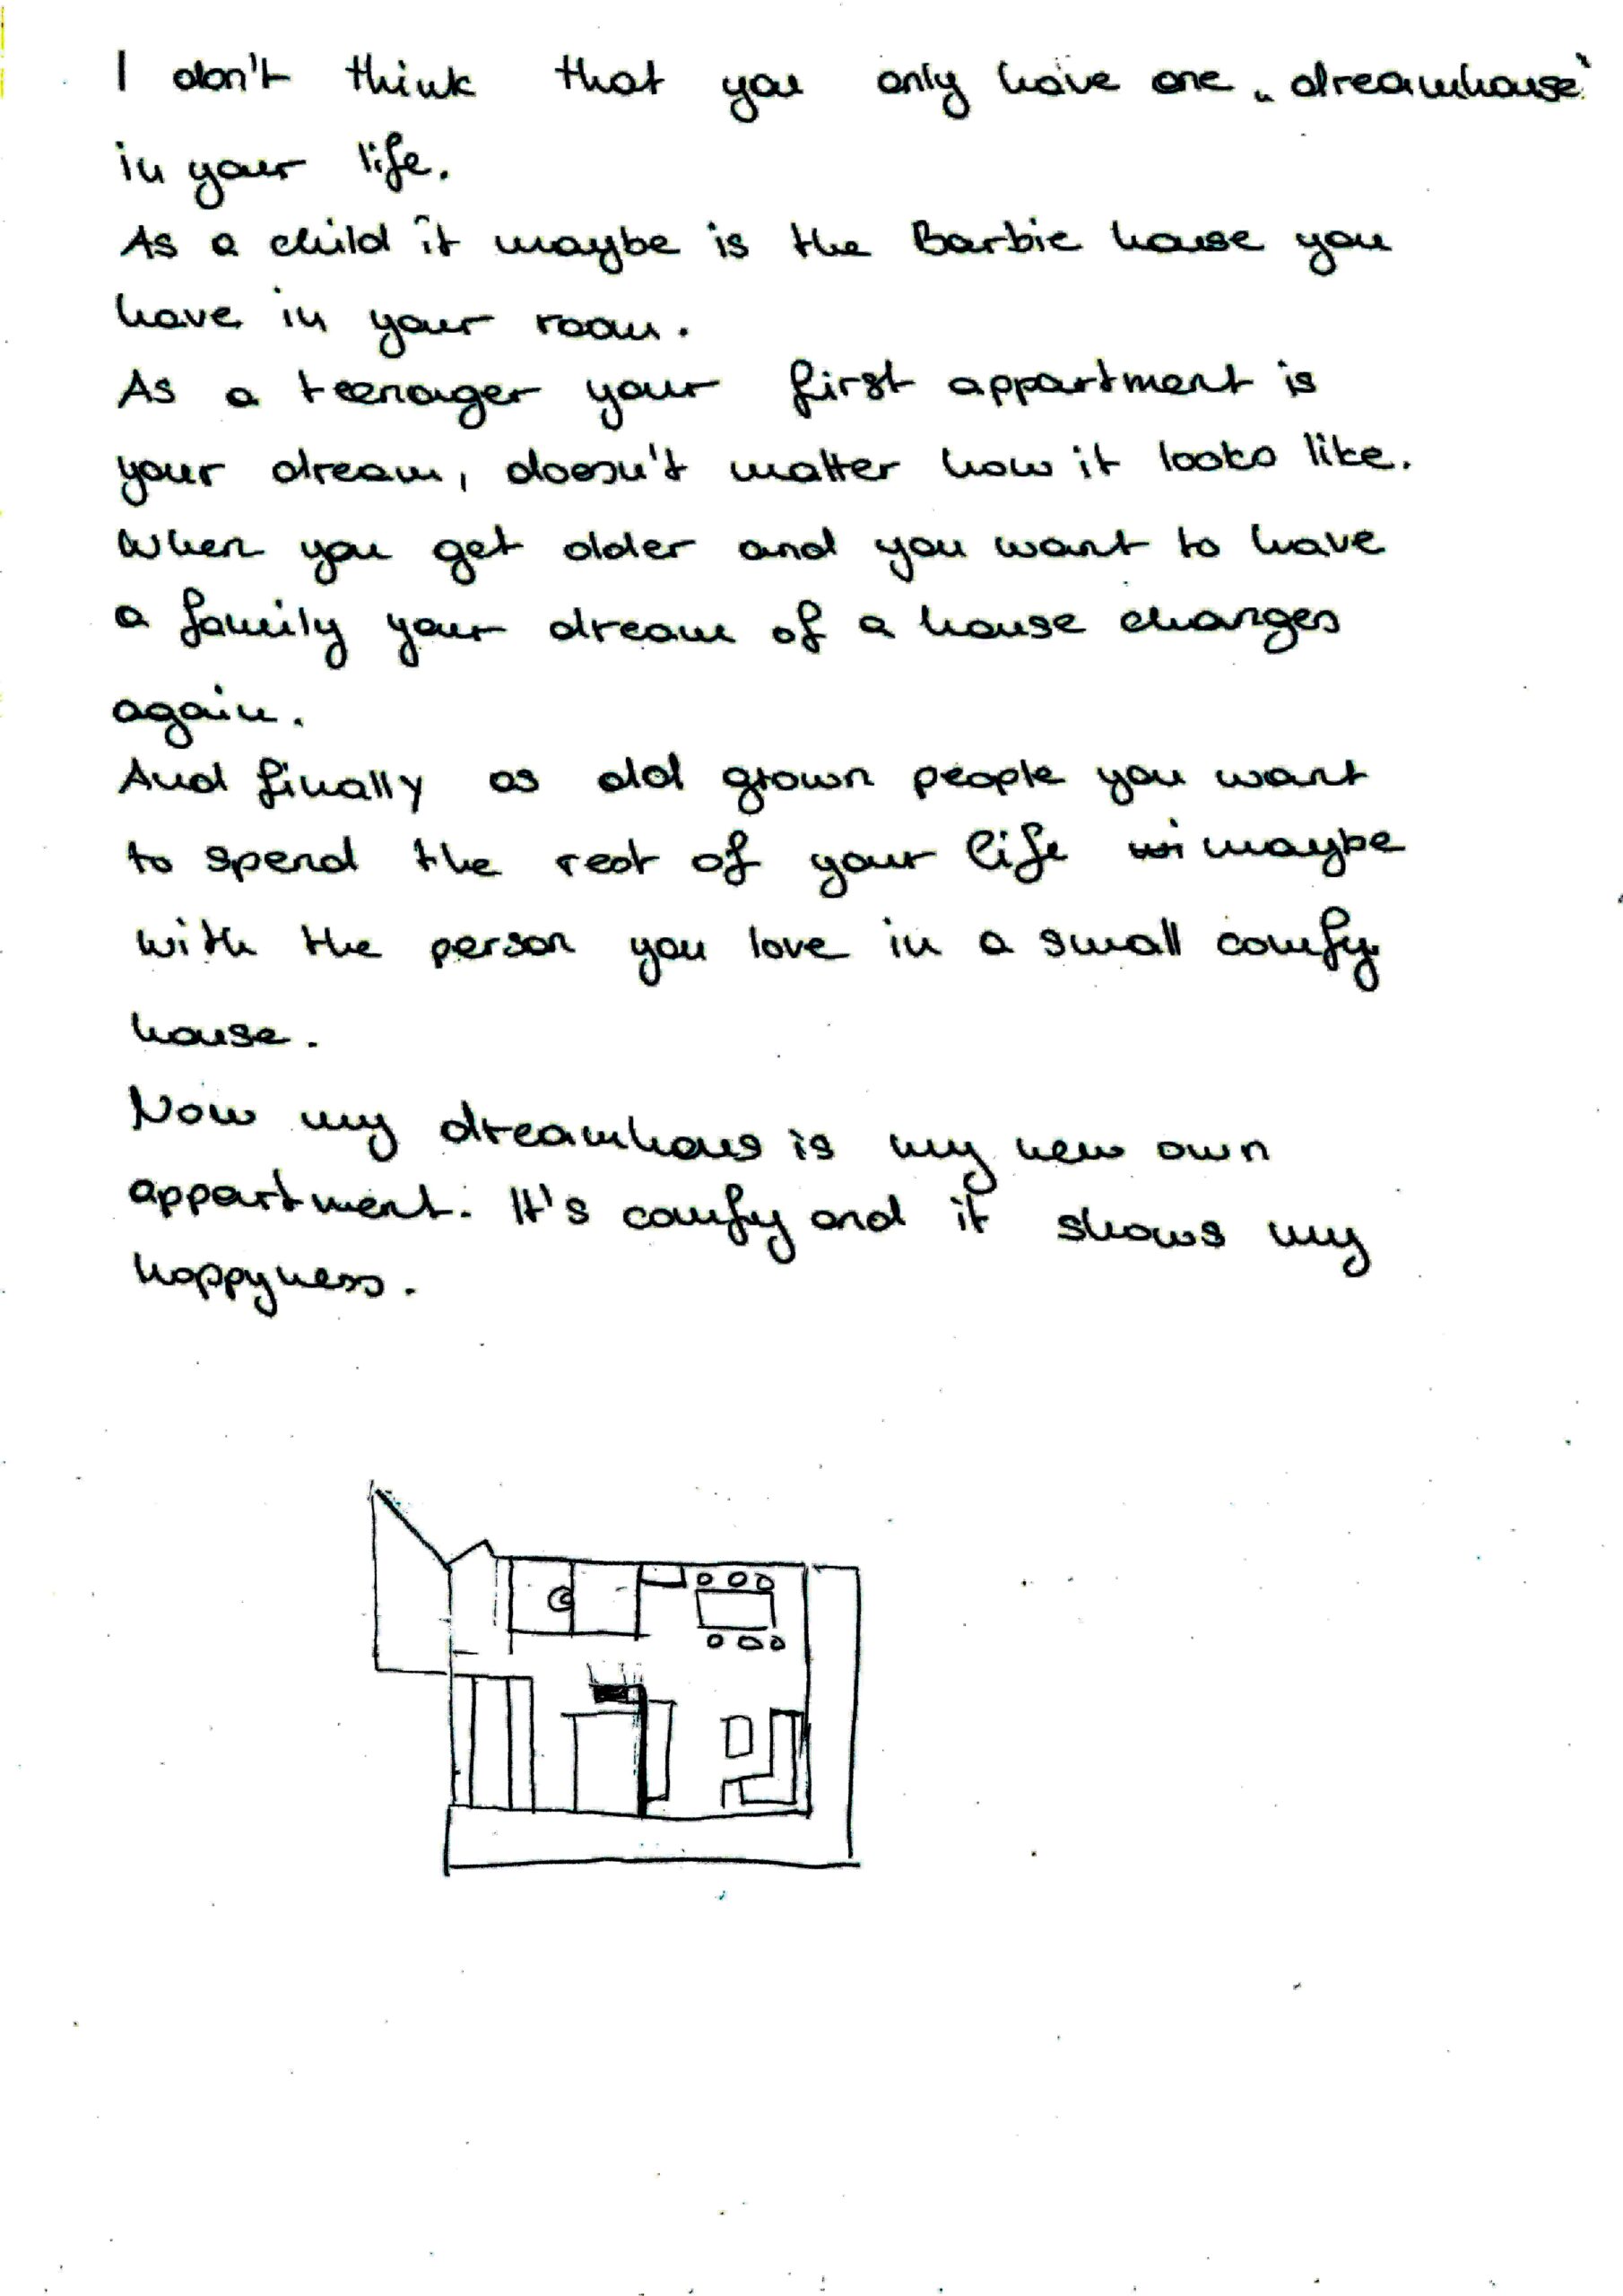 I don't think that you only have one „dreamhouse“
in your life.
As a child it maybe is the Barbie house you
have in your room.
As a teenager your first appartment is
your dream, doesn't matter how it looks like.
When you get older and you want to have
a family your dream of a house changes
again.
And finally as old grown people you want
to spend the rest of your life wi maybe
with the person you love in a small comfy
house.
Now my dreamhous is my new own
appartment. It's comfy and it shows my
happyness.